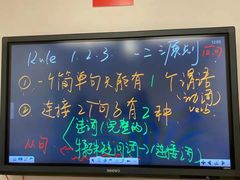 Rule 1.2.3. 一二三原则
① 一个简单句只能有1个谓语
动词
verb.
② 连接2个句子有2种
连词(完整的)
从句 特殊疑问词→(连接词)